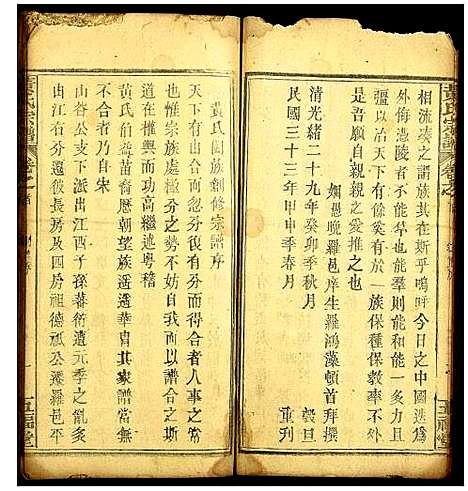 相流湊之譜族其在斯乎嗚呼今日之中國迭爲
外侮憑陵者不能羣也能羣則能和能一多力且
彊以治天下有餘奚有於一族保種保教亦不外
吾人自親親之愛推之也
姻愚晚羅邑庠生羅鴻藻頓首拜撰
清光緒二十九年癸卯季秋月 穀旦
民國三十三年甲申季春月 重刋
黃氏闔族創修宗譜序
天下有由合而忽分復有分而得合者人事之常
也惟宗族分之勢不妨自我而以譜合之斯
道在權輿而功高繼述粤稽
黃氏伯苗裔歷朝望族遥遥華胄其家譜當無
不合者乃自宋
山谷公支下派出江西子孫蕃衍遭元季之亂爰
由江省分遷居及四房祖德祇公遷羅邑平
黃氏宗譜
卷之首
五福堂